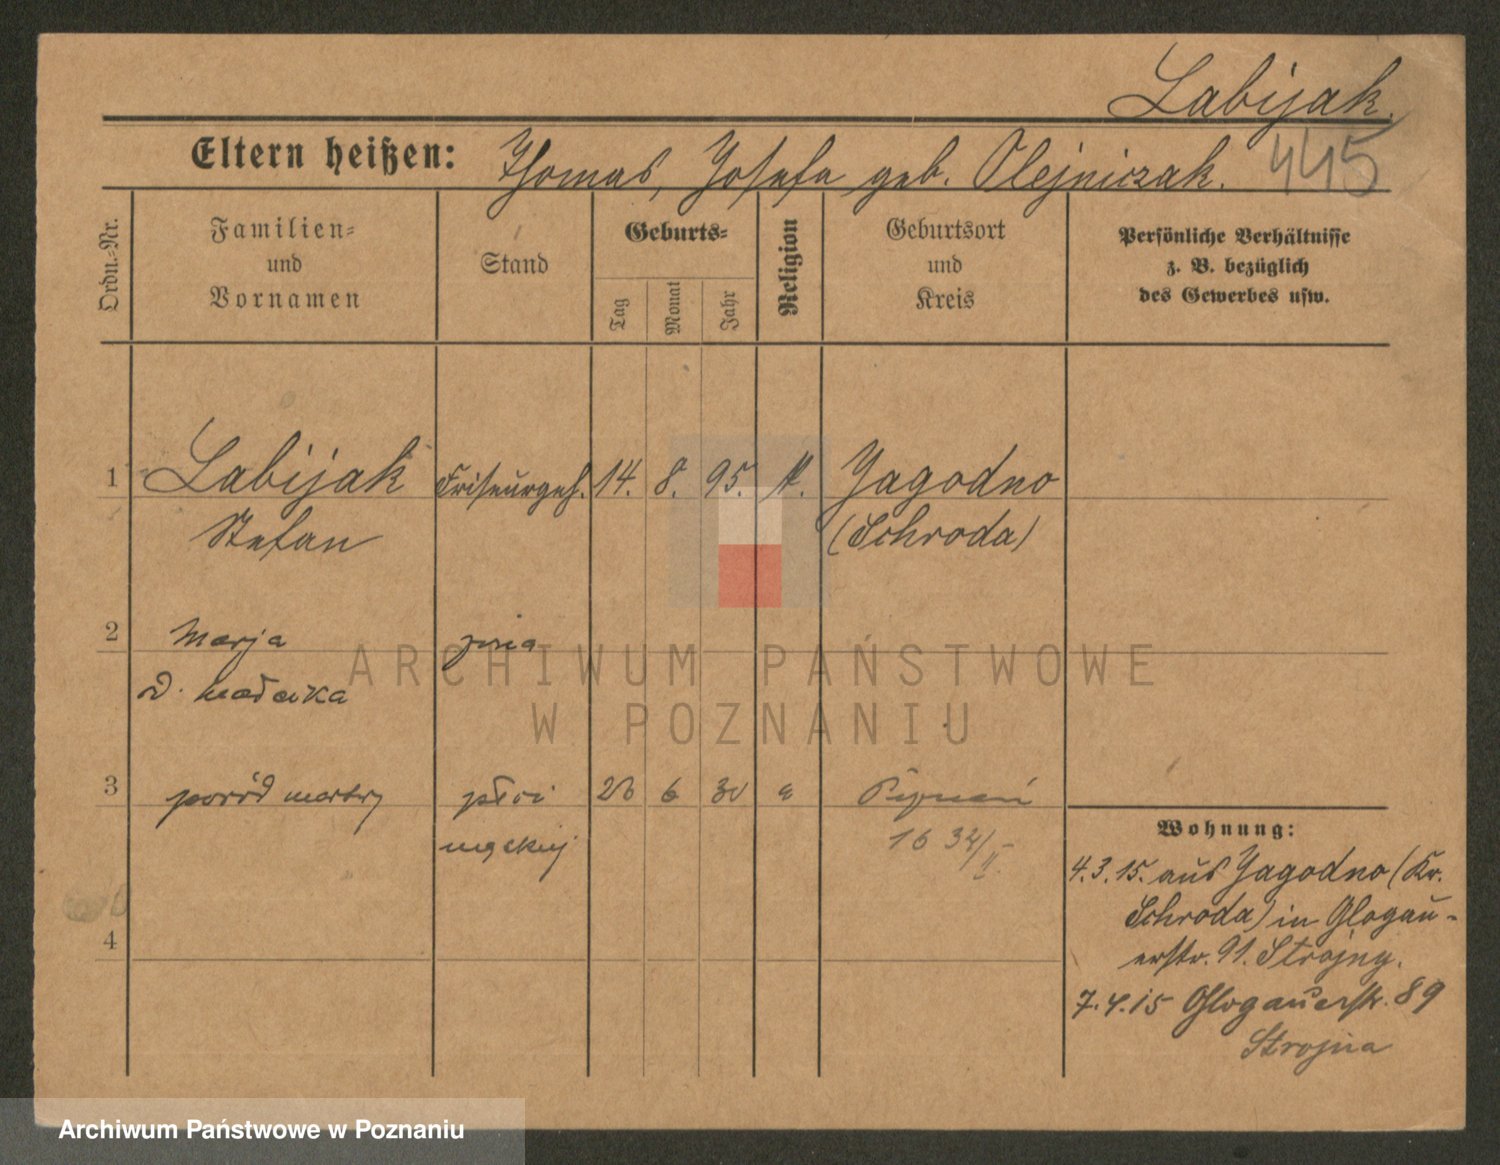 Labijak.
Eltern heißen: Thomas, Josefa geb. Olejniczak. 445
Ordn.-Nr.
Familien-
und
Vornamen
Stand
Geburts-
Tag
Monat
Jahr
Religion
Geburtsort
und
Kreis
Persönliche Verhältnisse
z. B. bezüglich
des Gewerbes usw.
1 Labijak Friseurgeh. 14. 8. 95. k. Jagodno
Stefan (Schroda)
2 Marja żona
ARCHIWUM PAŃSTWOWE
W POZNANIU
3 poród martwy płci 26 6 30 Poznań
męskiej 16 32/II
Wohnung:
4.3.15. aus Jagodno (Kr.
Schroda) in Glogau-
erstr. 91. Strojny.
4
7.4.15 Glogauerstr. 89
Strojna
Archiwum Państwowe w Poznaniu